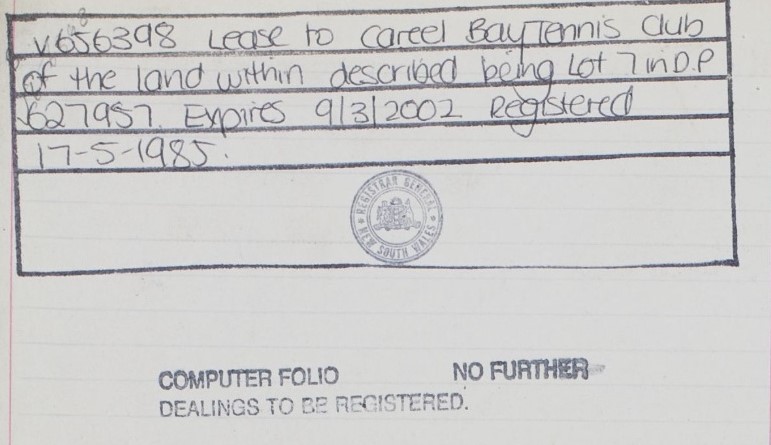 V656398 Lease to Careel Bay Tennis Club
of the land within described being Lot 7 in D.P
627957. Expires 9/3/2002 Registered
17-5-1985.
REGISTRAR GENERAL
NEW SOUTH WALES
COMPUTER FOLIO NO FURTHER
DEALINGS TO BE REGISTERED.